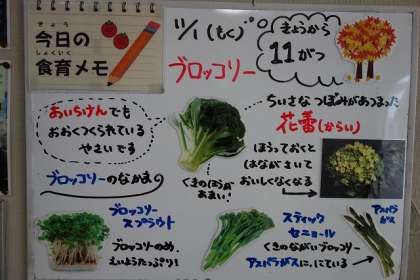 きょう
今日の
しょくいく
食育メモ
11/1(もく)
きょうから
11がつ
ブロッコリー
あいちけんでも
おおくつくられている
やさいです
ちいさなつぼみがあつまった
花蕾(からい)
ほうっておくと
はながさいて
おいしくなくなる
くきのほうが
あまい!
ブロッコリーのなかま
ブロッコリー
スプラウト
ブロッコリーのめ、
えいようたっぷり!
スティック
セニョール
くきのながいブロッコリー
アスパラガスににている
アスパラ
ガス